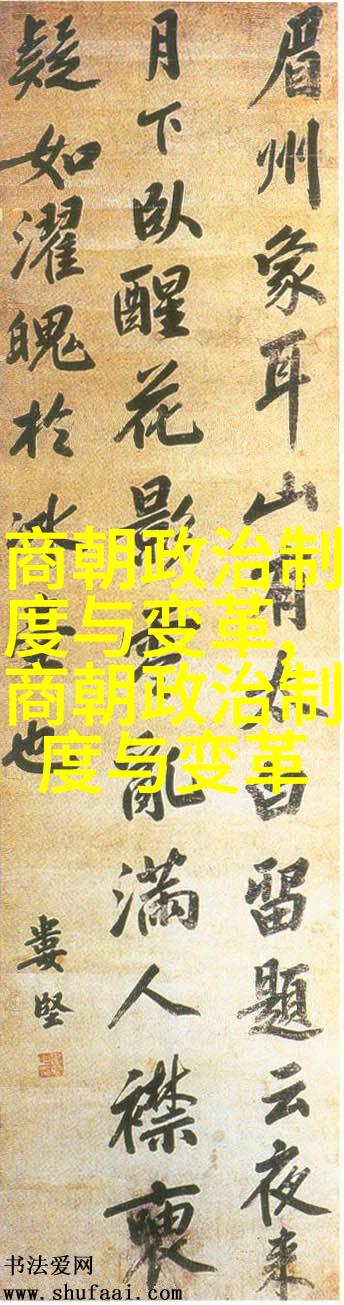 眉州象耳山有李白留題云夜来
月下臥醒花影零亂滿人襟
疑如濯魄於冰壺也
婁堅
商朝政治制
度与变革,
商朝政治制
度与变革
书法爱网
www.shufaai.com